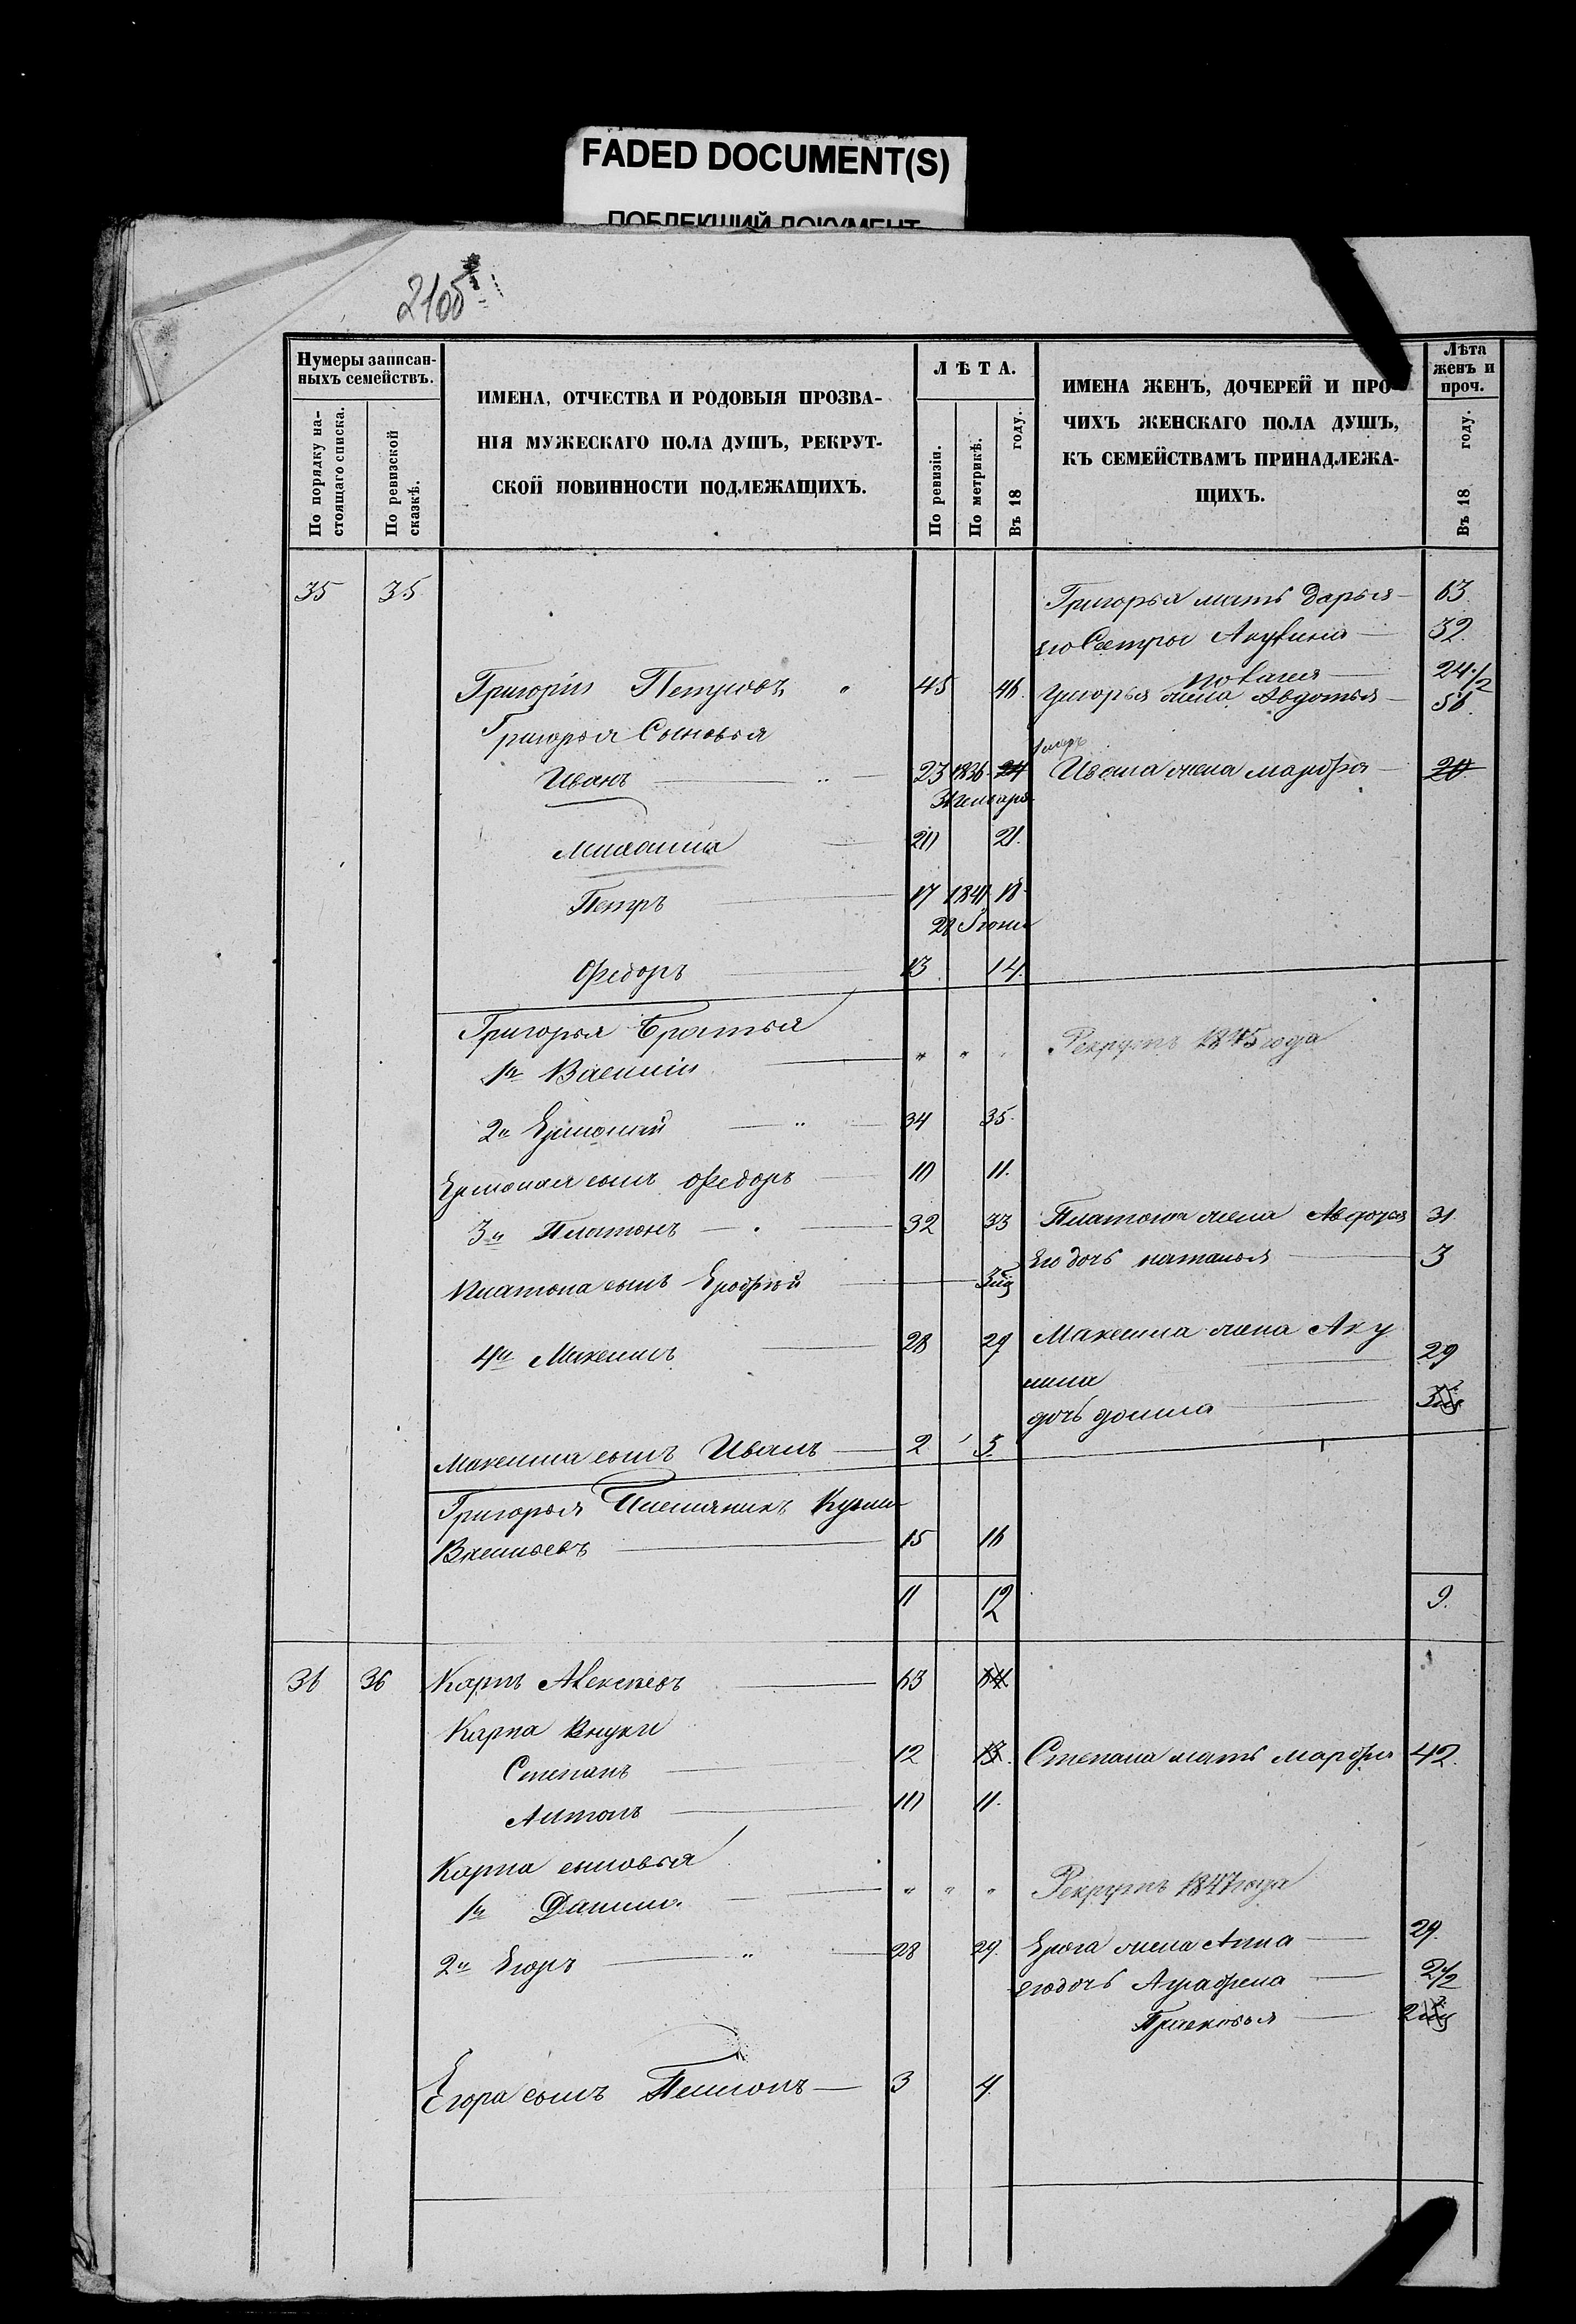 FADED DOCUMENT(S)
ПОБЛЕКШИЙ ДОКУМЕНТ
2100
Нумеры записан-
ныхъ семействъ.
По порядку на-
стоящаго списка.
По ревизской
сказкѣ.
ИМЕНА, ОТЧЕСТВА И РОДОВЫЯ ПРОЗВА-
НІЯ МУЖЕСКАГО ПОЛА ДУШЪ, РЕКРУТ-
СКОЙ ПОВИННОСТИ ПОДЛЕЖАЩИХЪ.
ЛѢТА.
По ревизіи.
По метрикѣ.
Въ 18 году.
ИМЕНА ЖЕНЪ, ДОЧЕРЕЙ И ПРО-
ЧИХЪ ЖЕНСКАГО ПОЛА ДУШЪ,
КЪ СЕМЕЙСТВАМЪ ПРИНАДЛЕЖА-
ЩИХЪ.
Лѣта
женъ и
проч.
Въ 18 году.
35 35 Григорья мать Дарья 63
его Сестры Акулина 32.
24 1/2
Григорій 45 46. Григорья жена Авдотья 56.
Григорья Сыновья
Иванъ 23 1836 24 Ивана жена марфа 20
31 Генваря
Михаила 20 21.
Петръ 17 1841 18
28 Іюня
Федоръ 13 14.
Григорья братья
1й Василій " " " Рекрутъ 1845 года
2й Ермолай 34 35.
Ермолая сынъ Федоръ 10 11.
3й Платонъ 32 33 Платона жена Авдотья 31.
Его дочь наталья 3
Платона сынъ Ерофѣй
4й Максимъ 28 29 Максима жена Аку
лина 29
дочь домна
Максима сынъ Иванъ 2 3
Григорья Племяникъ Кузма
Васильевъ 15 16
11 12 9.
36 36 Карпъ Алексѣевъ 63 64
Карпа внуки
Степанъ 12 13. Степана мать марфа 42.
Антонъ 10 11.
Карпа сыновья
1й Данило " " " Рекрутъ 1847 года
2й Егоръ 28 29. Егора жена Анна 29.
его дочь Аграфена 2 1/2
Прасковья
Егора сынъ 3 4.